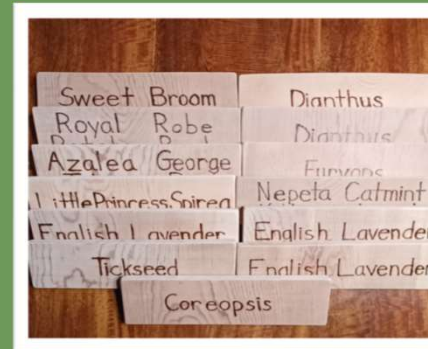 Sweet Broom
Royal Robe
Azalea George
Little Princess Spirea
English Lavender
Tickseed
Dianthus
Dianthus
Euryops
Nepeta Catmint
English Lavender
English Lavender
Coreopsis